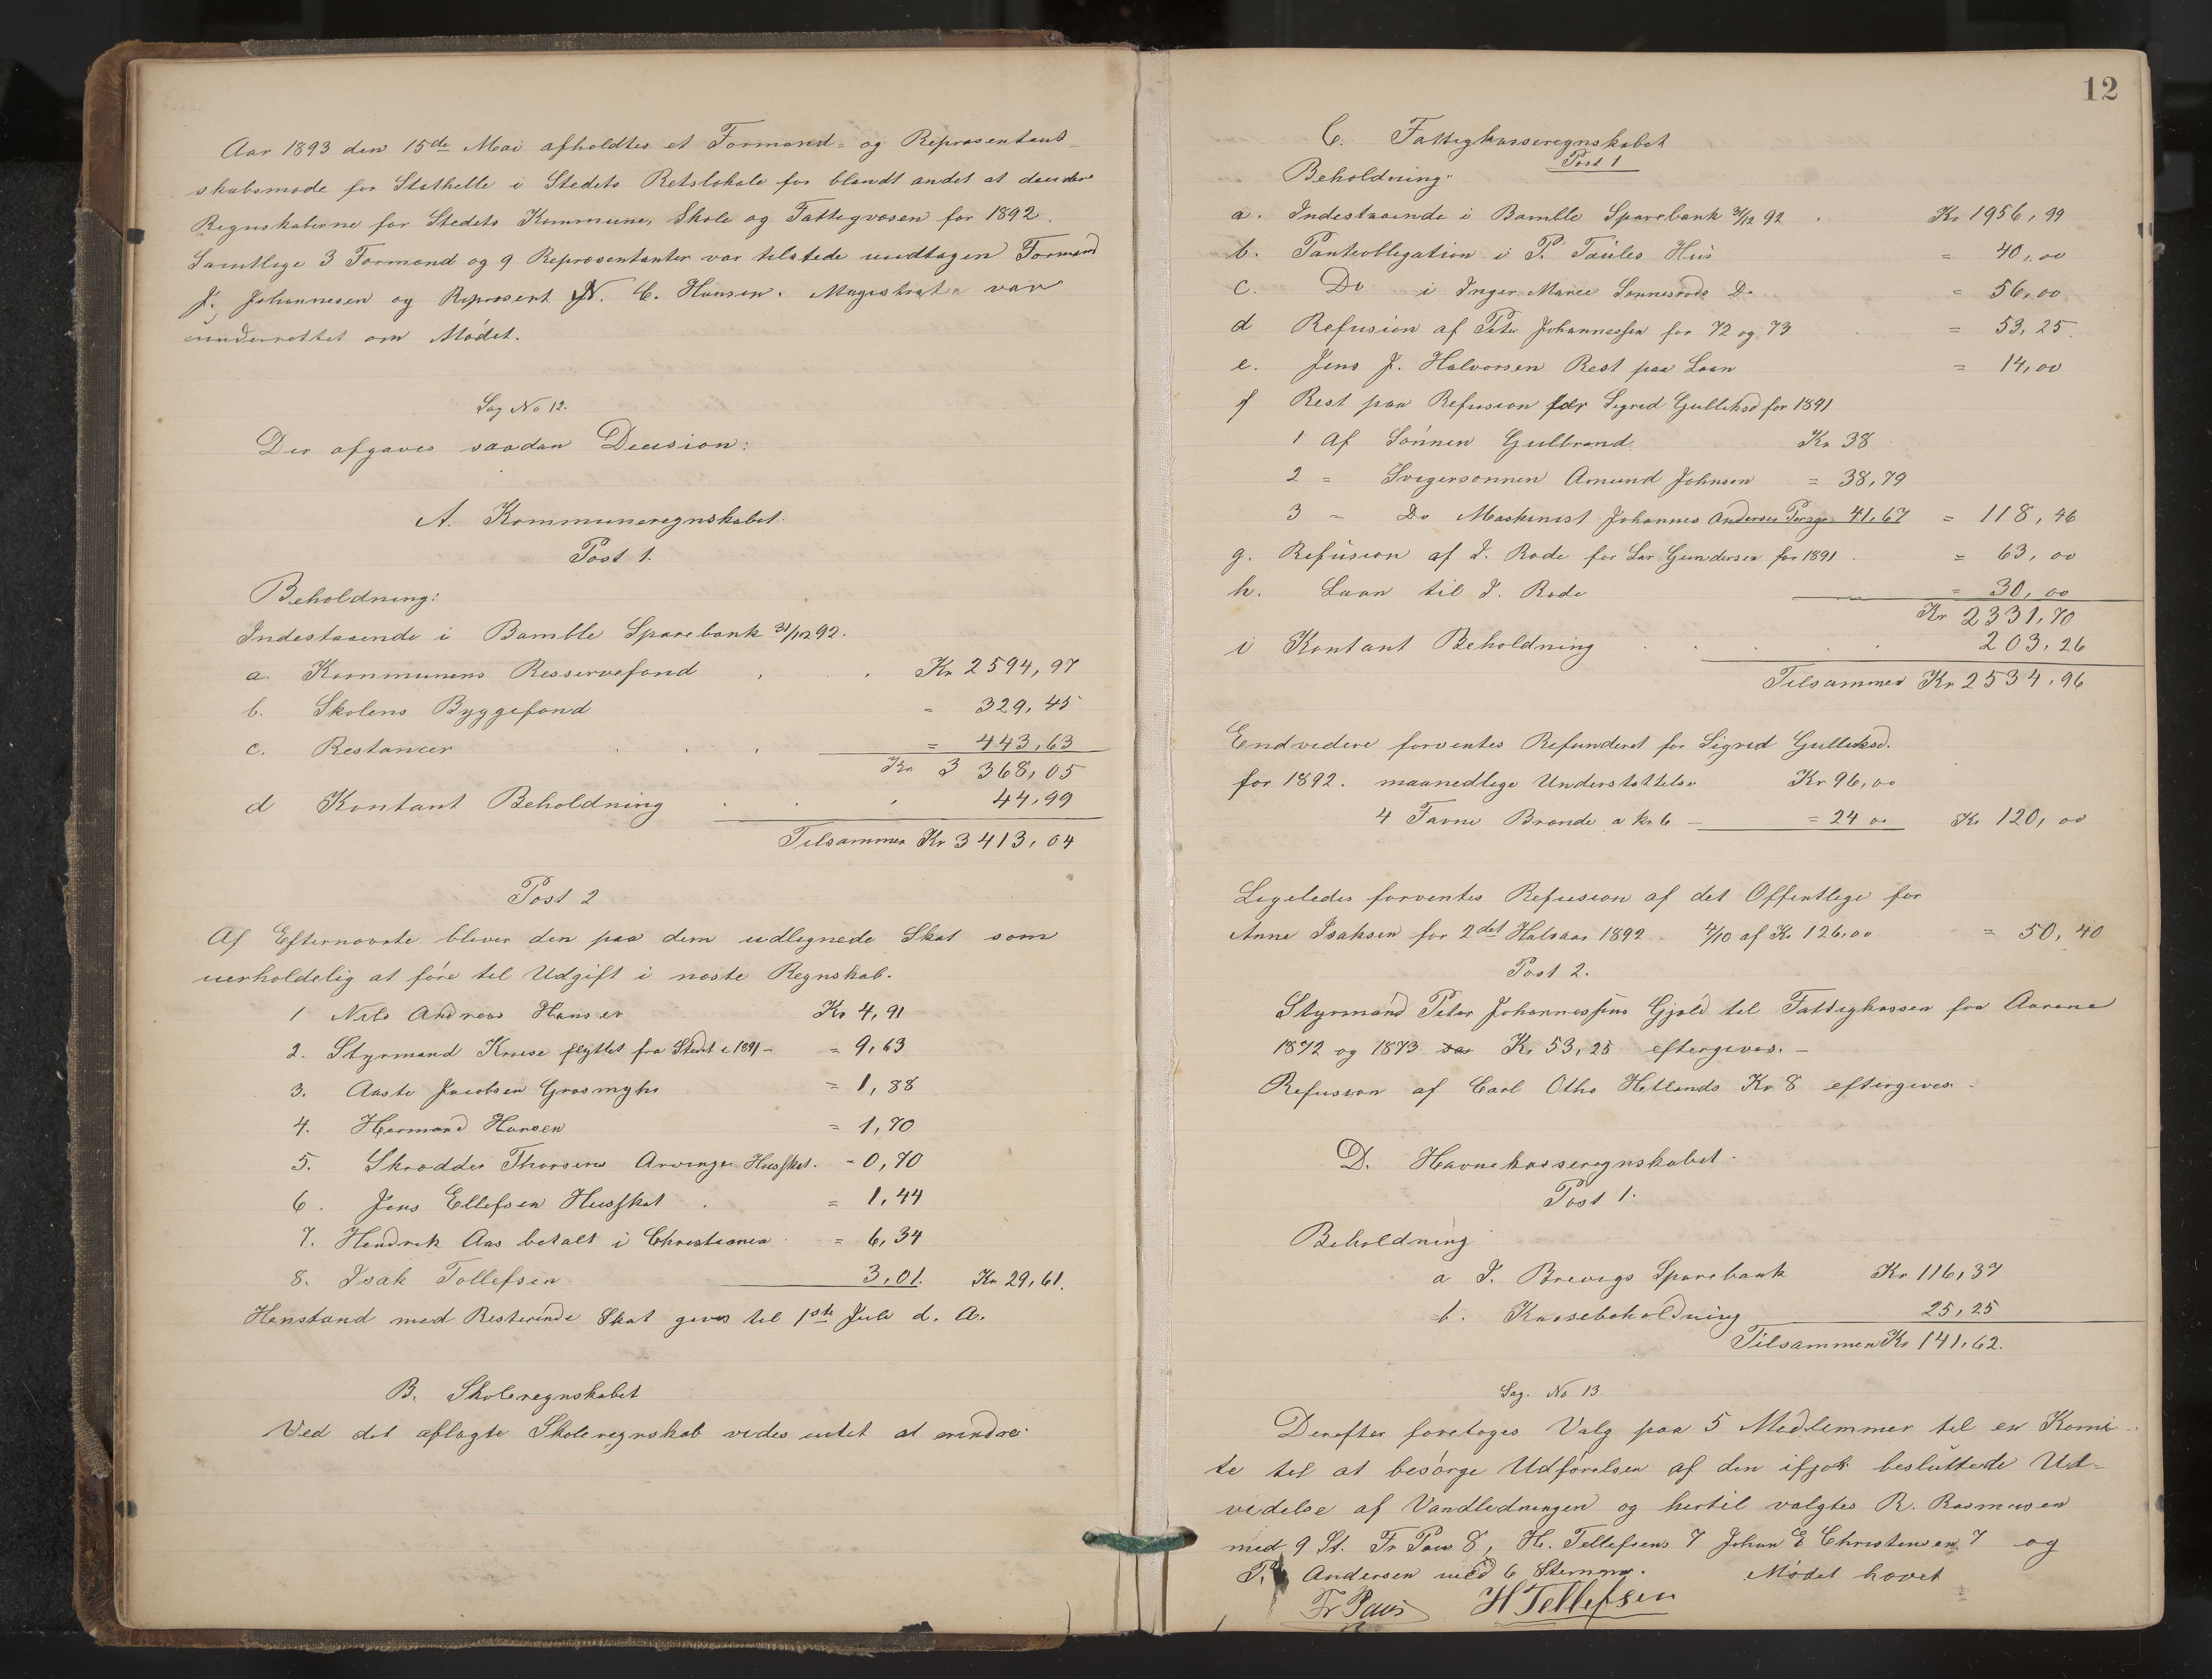 Aar 1893 den 15de Mai afholdtes et Formand- og Repræsentant-
skabsmøde for Stathelle i Stedets Retslokale for blandt andet at decidere
Regnskaberne for Stedets Kommune, Skole og Fattigvæsen for 1892.
Samtlige 3 Formænd og 9 Repræsentanter var tilstede undtagen Formand
J. Johannesen og Repræsent N. C. Hansen. Magistraten var
underrettet om Mødet.
Sag No 12.
Der afgaves saadan Decision:
A. Kommuneregnskabet.
Post 1.
Beholdning:
Indestaaende i Bamble Sparebank 31/12 92.
a. Kommunens Resservefond Kr 2594,97
b. Skolens Byggefond = 329,45
c. Restancer = 443,63
Kr 3 368,05
d Kontant Beholdning 44,99
Tilsammen Kr 3413,04
Post 2
Af Efternævnte bliver den paa dem udlignede Skat som
uerholdelig at føre til Udgift i næste Regnskab.
1 Nils Andreas Hansen Kr 4,91
2. Styrmand Kruse flyttet fra Stedet i 1891 – = 9,63
3. Aaste Jacobsen Græsmyhr = 1,88
4. Hermand Hansen = 1,70
5. Skrædder Thorsens Arvinger Husskat. - 0,70
6. Jens Ellefsen Husskat = 1,44
7. Hendrik Aas betalt i Christiania = 6,34
8. Isak Tollefsen 3,01. Kr 29,61.
Henstand med Resterende Skat gives til 1ste Juli d. A.
B. Skoleregnskabet
Ved det aflagte Skoleregnskab vides intet at erindre.
12
C. Fattigkasseregnskabet
Post 1
Beholdning:
a. Indestaaende i Bamble Sparebank 31/12 92 Kr 1956,99
b. Panteobligation i P. Taules Hus = 40,00
c. Do i Inger Marie Do = 56,00
d Refusion af Peter Johannessen for 72 og 73 = 53,25
e. Jens J. Halvorsen Rest paa Laan = 14,00
f Rest paa Refusion for Sigrid Gulliksd for 1891
1 Af Sønnen Gulbrand Kr 38
2 = Svigersønnen Amund Johnsen = 38,79
3 = Do Maskinist Johannes Andersen 41,67 = 118,46
g. Refusion af I. Rode for Lar Gundersen for 1891 = 63,00
h. Laan til I. Rode = 30,00
Kr 2331,70
i Kontant Beholdning 203,26
Tilsammen Kr 2534,96
Endvidere forventes Refunderet for Sigrid Gulliksd.
for 1892. maanedlige Understøttelse Kr 96,00
4 Favne Brænde a kr 6 – = 24 00 Kr 120,00
Ligeledes forventes Refusion af det Offentlige for
Anne Isaksen for 2det Halvaar 1892. 4/10 af Kr 126,00 = 50,40
Post 2.
Styrmand Peter Johannessens Gjæld til Fattigkassen fra Aarene
1872 og 1873 Kr 53,25 eftergives. –
Refusion af Carl Otho Hetlands Kr 8 eftergives –
D. Havnekasseregnskabet.
Post 1.
Beholdning
a I. Brevigs Sparebank Kr 116,37
b. Kassebeholdning 25,25
Tilsammen Kr 141,62.
Sag. No 13.
Derefter foretoges Valg paa 5 Medlemmer til en Komi-
te til at besørge Udførelsen af den ifjor besluttede Ud-
videlse af Vandledningen og hertil valgtes R. Rasmusen
med 9 St. Fr Paus 8, H. Tellefsens 7 Johan E Christensen 7 og
P. Andersen med 6 Stemmer. Mødet hævet
Fr Paus H Tellefsen